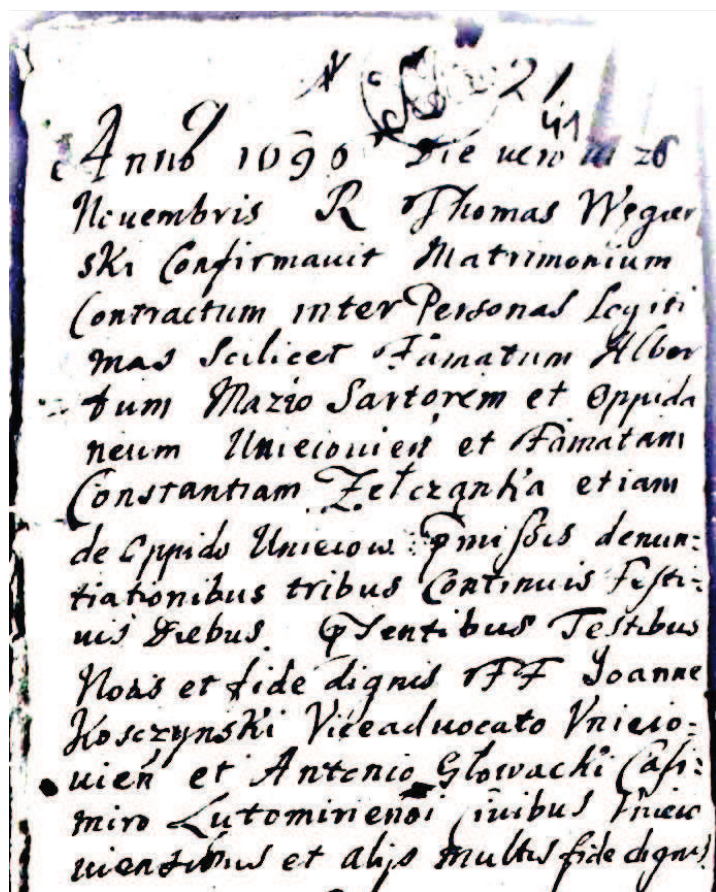 N 21
41
Anno 1690 Die vero 26
Nouembris R Thomas Węgier
ski Confirmauit Matrimonium
Contractum inter Personas Legiti
mas Scilicet Famatum Alber
tum Mazio Sartorem et Oppida
neum Unieiouień et Famatam
Constantiam etiam
de Oppido Unieiow pmissis denun:
tiationibus tribus Continuis Festi:
uis Diebus. psentibus Testibus
Notis et fide dignis FF Joanne
Kosczynski Viceaduocato Vnieio:
uień et Antonio Głowacki Casi:
miro Lutomirienśi Ciuibus Vnieio
uiensibus et alijs multis fide dignis